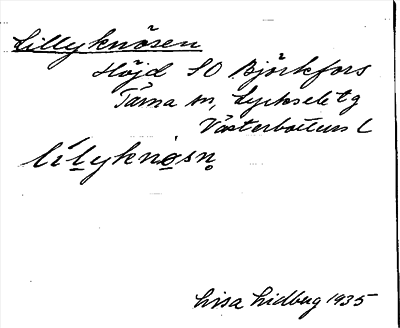 Lillyknösen
Höjd SO Björkfors
Tärna sn, Lycksele tg
Västerbottens l
lílyknøsn̥
Lisa Lidberg 1935